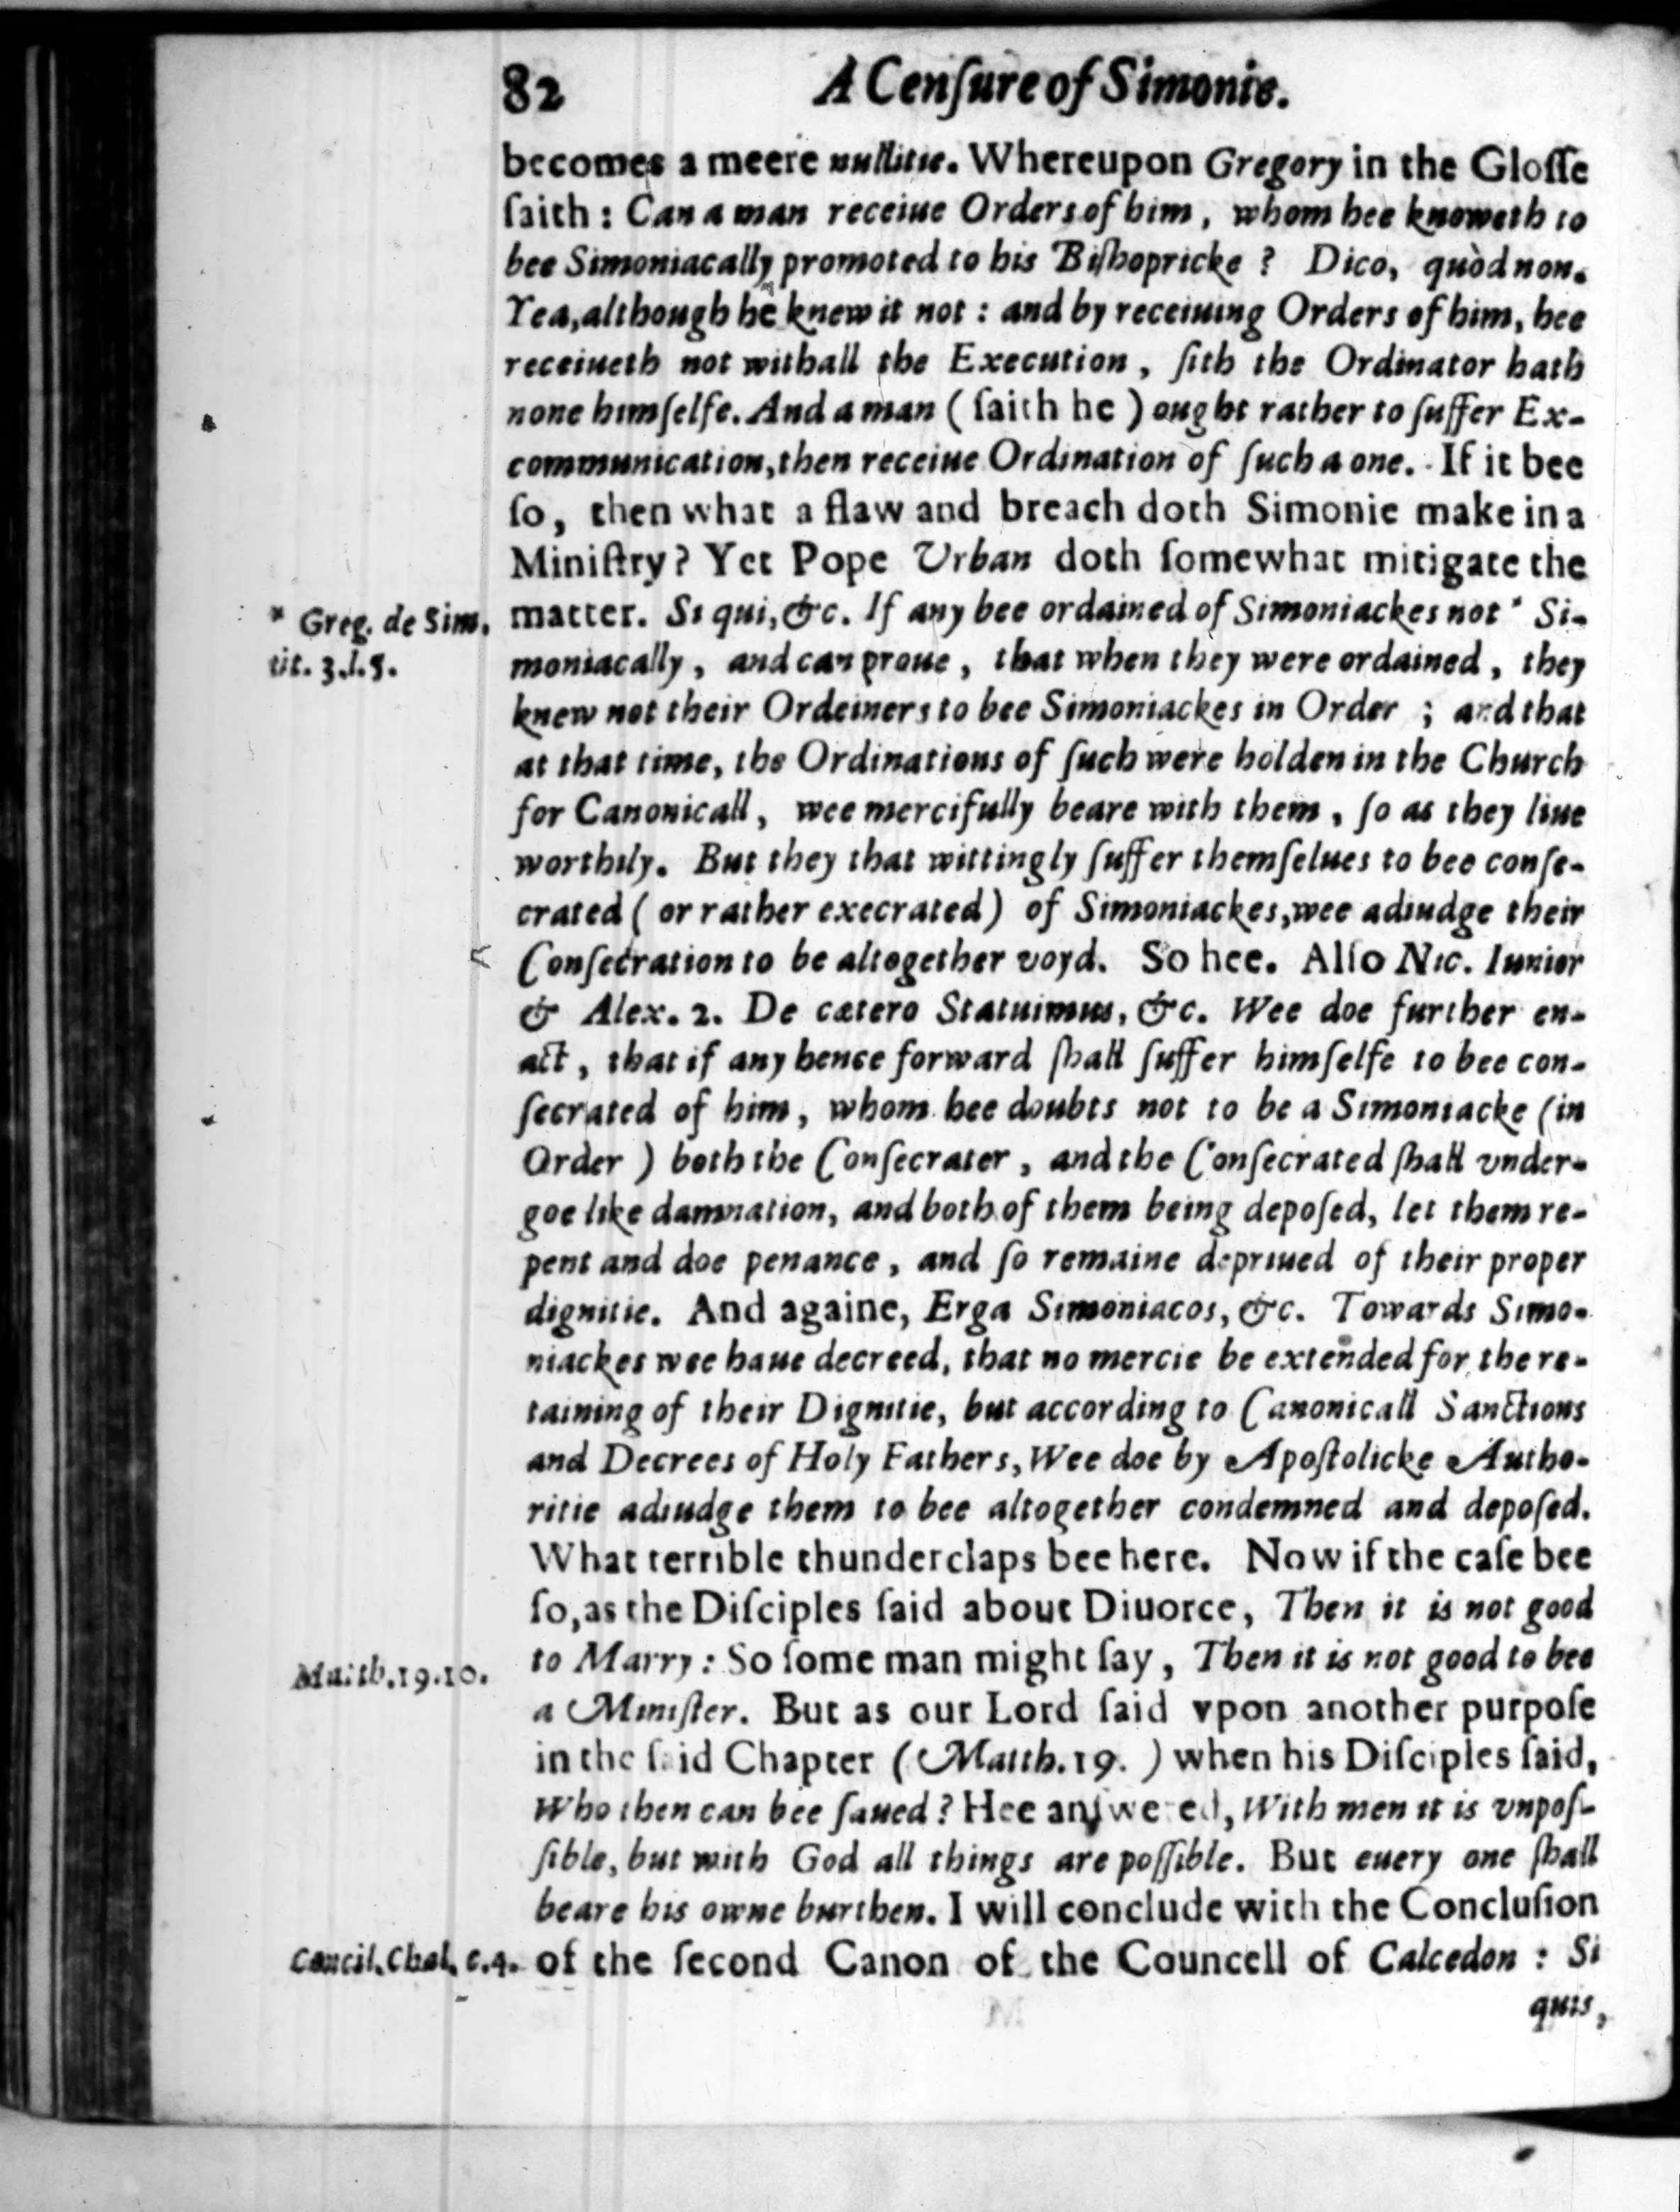 82 A Cenſure of Simonie.
becomes a meere nullitie. Whereupon Gregory in the Gloſſe
ſaith : Can a man receiue Orders of him, whom hee knoweth to
bee Simoniacally promoted to his Biſhopricke ? Dico, quòd non.
Yea, although he knew it not : and by receiuing Orders of him, hee
receiueth not withall the Execution, ſith the Ordinator hath
none himſelfe. And a man ( ſaith he ) ought rather to ſuffer Ex-
communication, then receiue Ordination of ſuch a one. If it bee
ſo, then what a flaw and breach doth Simonie make in a
Miniſtry? Yet Pope Urban doth ſomewhat mitigate the
* Greg. de Sim.
tit. 3.l.5.
matter. Si qui, &c. If any bee ordained of Simoniackes not * Si-
moniacally, and can proue, that when they were ordained, they
knew not their Ordeiners to bee Simoniackes in Order ; and that
at that time, the Ordinations of ſuch were holden in the Church
for Canonicall, wee mercifully beare with them, ſo as they liue
worthily. But they that wittingly ſuffer themſelues to bee conſe-
crated ( or rather execrated ) of Simoniackes, wee adiudge their
Conſecration to be altogether voyd. So hee. Alſo Nic. Iunior
& Alex. 2. De cætero Statuimus, &c. Wee doe further en-
act, that if any hence forward ſhall ſuffer himſelfe to bee con-
ſecrated of him, whom hee doubts not to be a Simoniacke (in
Order ) both the Conſecrater, and the Conſecrated ſhall vnder-
goe like damnation, and both of them being depoſed, let them re-
pent and doe penance, and ſo remaine depriued of their proper
dignitie. And againe, Erga Simoniacos, &c. Towards Simo-
niackes wee haue decreed, that no mercie be extended for the re-
taining of their Dignitie, but according to Canonicall Sanctions
and Decrees of Holy Fathers, Wee doe by Apoſtolicke Autho-
ritie adiudge them to bee altogether condemned and depoſed.
What terrible thunderclaps bee here. Now if the caſe bee
ſo, as the Diſciples ſaid about Diuorce, Then it is not good
Matth.19.10.
to Marry : So ſome man might ſay, Then it is not good to bee
a Miniſter. But as our Lord ſaid vpon another purpoſe
in the ſaid Chapter ( Matth.19. ) when his Diſciples ſaid,
Who then can bee ſaued ? Hee anſwered, With men it is vnpoſ-
ſible, but with God all things are poſſible. But euery one ſhall
beare his owne burthen. I will conclude with the Concluſion
Concil. Chal. c.4.
of the ſecond Canon of the Councell of Calcedon : Si
quis,